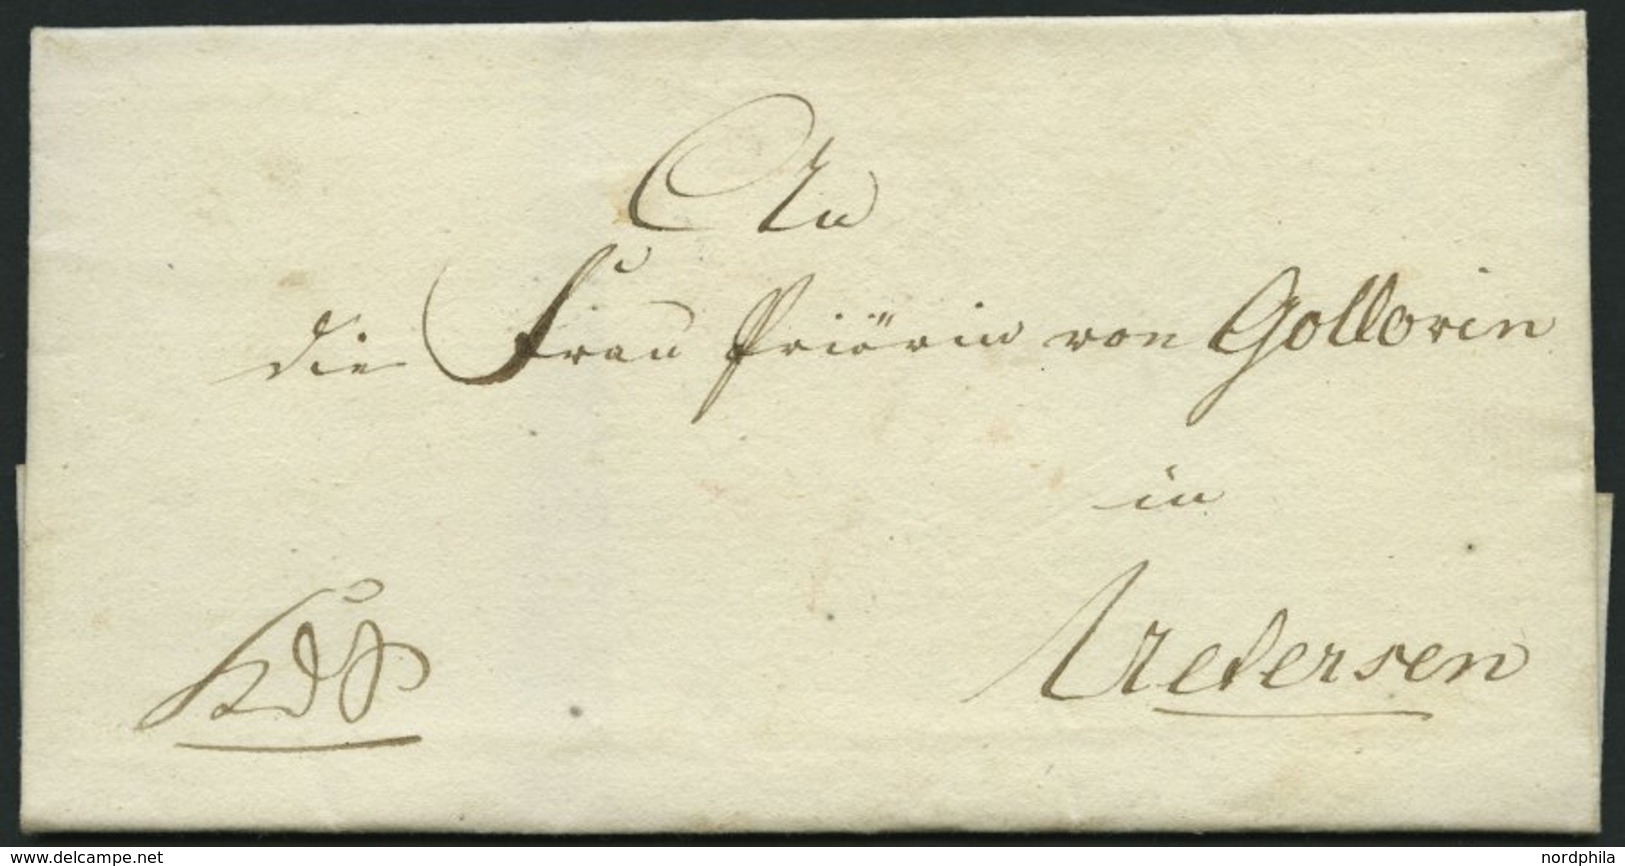 An
die Frau Priörin von Gollovin
in
Uetersen
KDS
www.delcampe.net
nordphila